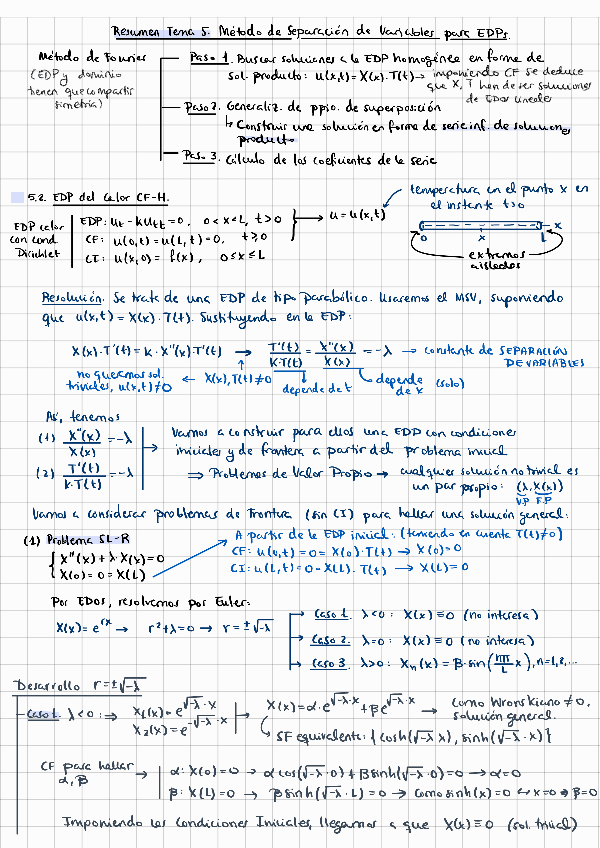 Resumen Tema 5: Método de Separación de Variables para EDPs.
Método de Fourier
(EDP y dominio
tienen que compartir
simetría)
Paso 1. Buscar soluciones a la EDP homogénea en forma de
sol. producto: u(x,t) = X(x)·T(t) → imponiendo CF se deduce
que X, T han de ser soluciones
de EDOs lineales
Paso 2. Generaliz. de ppio. de superposición
↳ Construir una solución en forma de serie inf. de soluciones
producto
Paso 3. Cálculo de los coeficientes de la serie
5.2. EDP del Calor CF-H.
EDP calor
con cond.
Dirichlet
EDP: ut - kuxx = 0, 0<x<L, t>0
CF: u(0,t) = u(L,t) = 0, t≥0
CI: u(x,0) = f(x), 0≤x≤L
→ u = u(x,t)
temperatura en el punto x en
el instante t>0
0 x L x
extremos
aislados
Resolución. Se trata de una EDP de tipo parabólico. Usaremos el MSV, suponiendo
que u(x,t) = X(x)·T(t). Sustituyendo en la EDP:
X(x)·T'(t) = k·X''(x)·T'(t) → T'(t)/K·T(t) = X''(x)/X(x) = -λ → constante de SEPARACIÓN
DE VARIABLES
no queremos sol.
triviales, u(x,t)≠0 ← X(x), T(t)≠0
depende de t
depende
de x (solo)
Así, tenemos
(1) X''(x)/X(x) = -λ
(2) T'(t)/k·T(t) = -λ
Vamos a construir para ellos una EDP con condiciones
iniciales y de frontera a partir del problema inicial
⇒ Problemas de Valor Propio → cualquier solución no trivial es
un par propio: (λ, X(x))
V.P F.P
Vamos a considerar problemas de frontera (sin CI) para hallar una solución general:
(1) Problema SL-R
X''(x) + λ·X(x) = 0
X(0) = 0 = X(L)
A partir de la EDP inicial: (teniendo en cuenta T(t)≠0)
CF: u(0,t) = 0 = X(0)·T(t) → X(0)=0
CI: u(L,t) = 0 = X(L)·T(t) → X(L)=0
Por EDOs, resolvemos por Euler:
X(x) = e^rx → r²+λ=0 → r = ±√-λ
Caso 1. λ<0: X(x) ≡ 0 (no interesa)
Caso 2. λ=0: X(x) ≡ 0 (no interesa)
Caso 3. λ>0: Xn(x) = B·sin(nπ/L x), n=1,2,...
Desarrollo r = ±√-λ
Caso 1. λ<0: ⇒ X1(x) = e^√-λ·x
X2(x) = e^-√-λ·x
X(x) = α·e^√-λ·x + βe^√-λ·x → como Wronskiano ≠ 0,
solución general.
↳ SF equivalente: {cosh(√-λ x), sinh(√-λ·x)}
CF para hallar
α, β
α: X(0)=0 → α cos(√-λ·0) + β sinh(√-λ·0) = 0 → α=0
β: X(L)=0 → β sinh(√-λ·L) = 0 → Como sinh(x)=0 ↔ x=0 ⇒ β=0
Imponiendo las Condiciones Iniciales, llegamos a que X(x) ≡ 0 (sol. trivial)